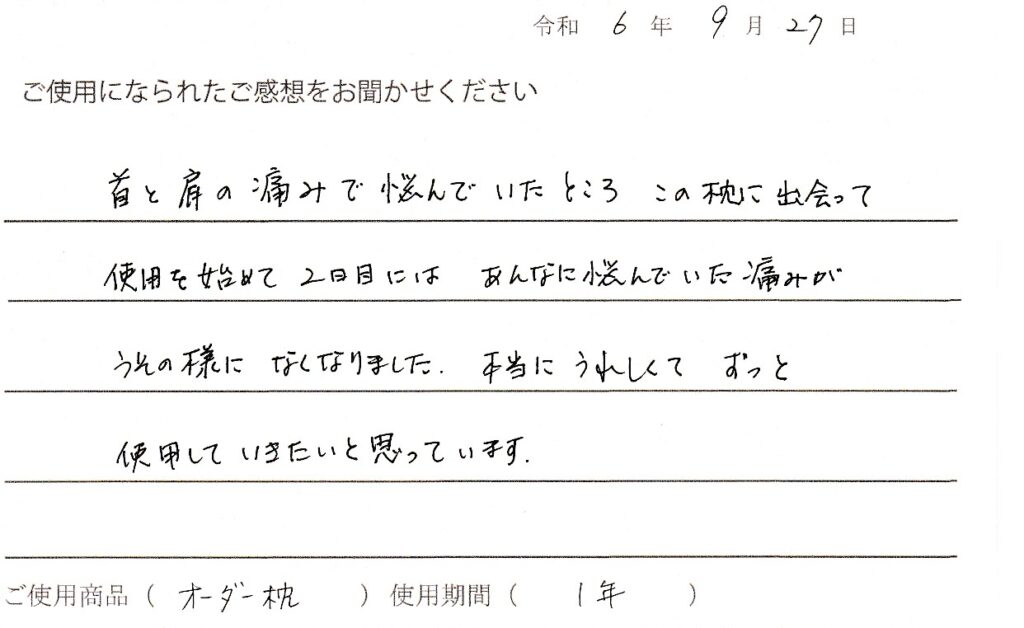 令和 6 年 9 月 27 日
ご使用になられたご感想をお聞かせください
首と肩の痛みで悩んでいたところ この枕に出会って
使用を始めて 2日目には あんなに悩んでいた痛みが
うその様に なくなりました. 本当に うれしくて ずっと
使用して いきたいと思っています.
ご使用商品 ( オーダー枕 ) 使用期間 ( 1年 )